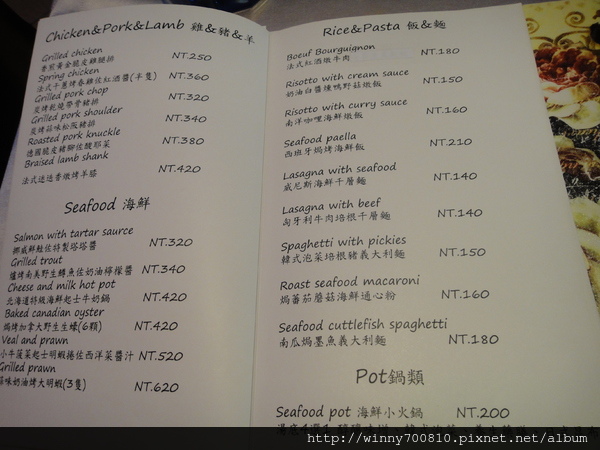 Chicken&Pork&Lamb 雞&豬&羊
Grilled chicken
香煎黃金脆皮雞腿排 NT.250
Spring chicken
法式干蔥烤春雞佐紅酒醬(半隻) NT.360
Grilled pork chop
炭烤乾燒帶骨豬排 NT.320
Grilled pork shoulder
炭烤蒜味松阪豬排 NT.340
Roasted pork knuckle
德國脆皮豬腳佐酸椰菜 NT.380
Braised lamb shank
法式迷迭香燉烤羊膝 NT.420
Seafood 海鮮
Salmon with tartar saurce
挪威鮭鮭佐特製塔塔醬 NT.320
Grilled trout
爐烤南美野生鱒魚佐奶油檸檬醬 NT.340
Cheese and milk hot pot
北海道特級海鮮起士牛奶鍋 NT.420
Baked canadian oyster
焗烤加拿大野生生蠔(6顆) NT.420
Veal and prawn
小牛菠菜起士明蝦捲佐西洋菜醬汁 NT.520
Grilled prawn
蒜味奶油烤大明蝦(3隻) NT.620
Rice&Pasta 飯&麵
Boeuf Bourguignon NT.180
法式紅酒燉牛肉
Risotto with cream sauce NT.150
奶油白醬燻鴨野菇燉飯
Risotto with curry sauce NT.160
南洋咖哩海鮮燉飯
Seafood paella NT.210
西班牙焗烤海鮮飯
Lasagna with seafood NT.140
威尼斯海鮮千層麵
Lasagna with beef NT.140
匈牙利牛肉培根千層麵
Spaghetti with pickies NT.150
韓式泡菜培根豬義大利麵
Roast seafood macaroni NT.160
焗蕃茄蘑菇海鮮通心粉
Seafood cuttlefish spaghetti NT.180
南瓜焗墨魚義大利麵
Pot鍋類
Seafood pot 海鮮小火鍋 NT.200
http://winny700810.pixnet.net/album